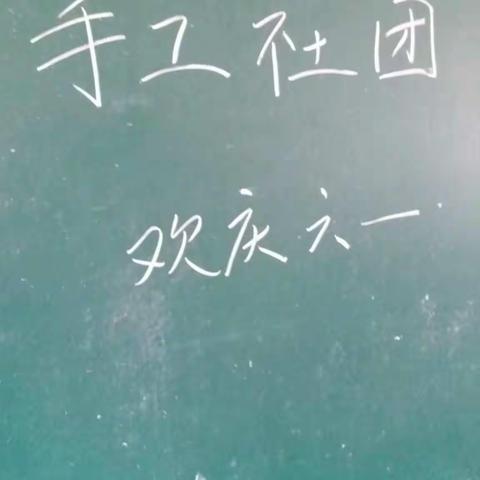 手工社团
欢庆六一